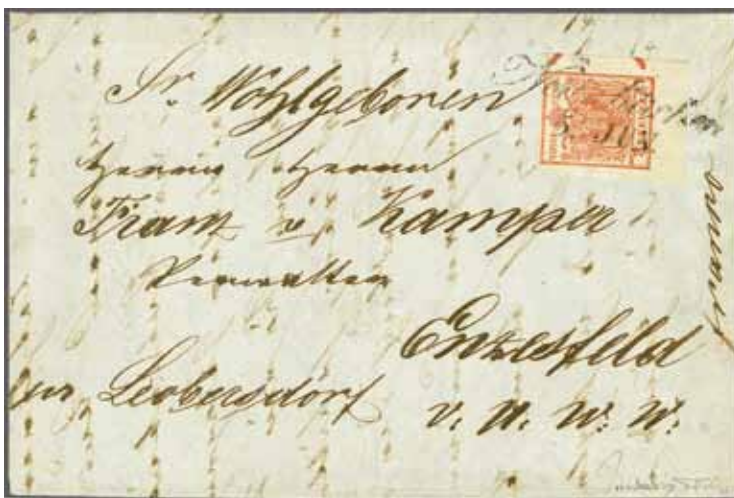 Sr. Wohlgeboren
Herrn Herrn
Franz v. Kamper
Verwalter
Enzesfeld
per Leobersdorf
V. U. W. W.
franco
5. JUN